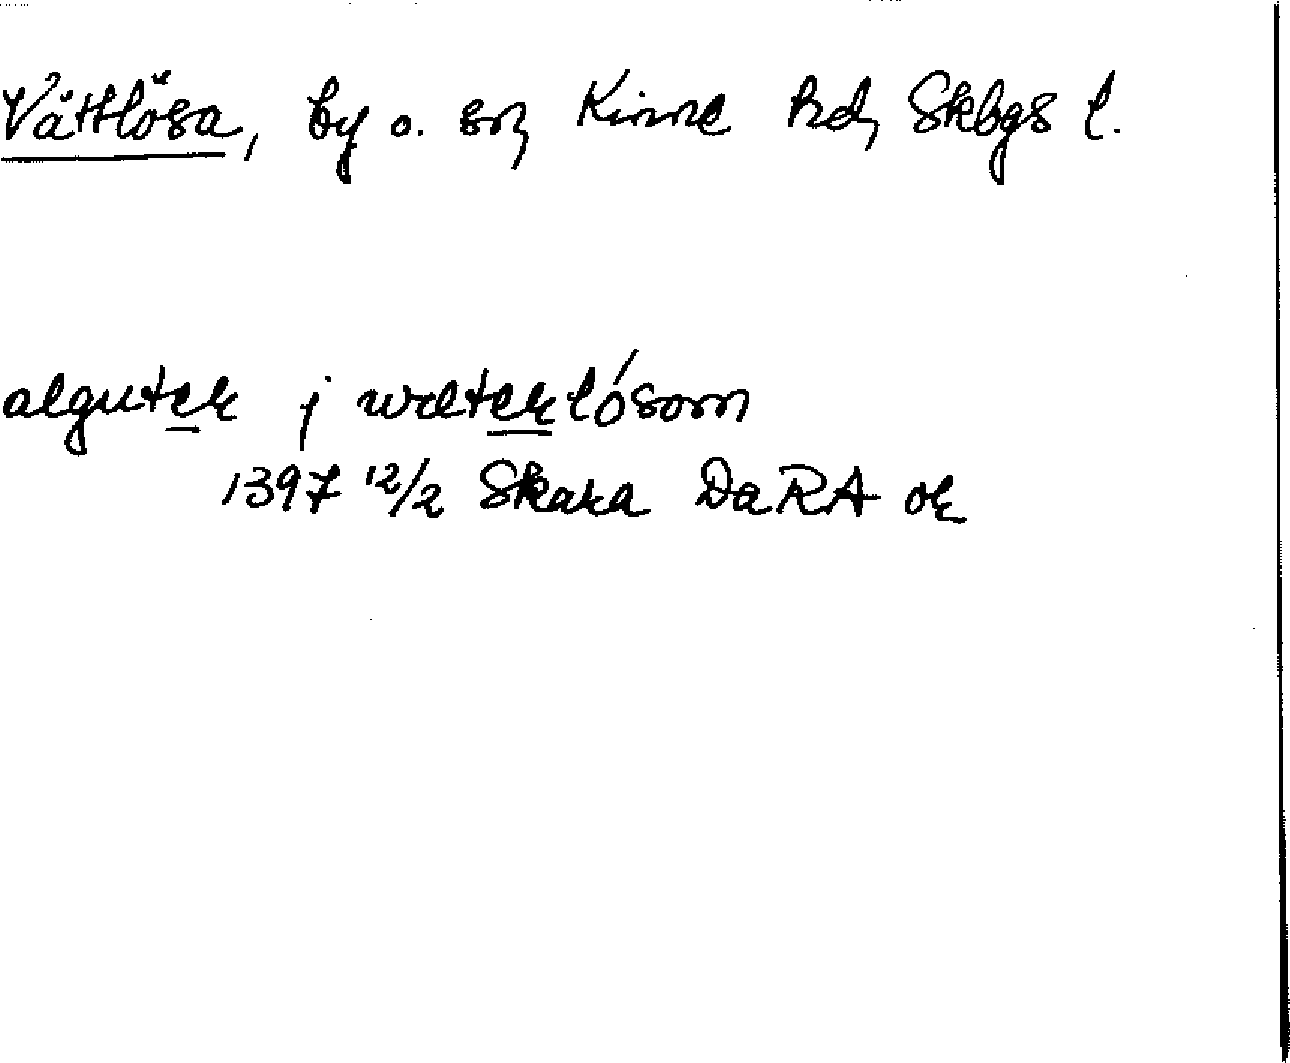 Vättlösa, by o. sn, Kinne hd, Skbgs l.
alguter j wæterlósom
1397 12/2 Skara DaRA or